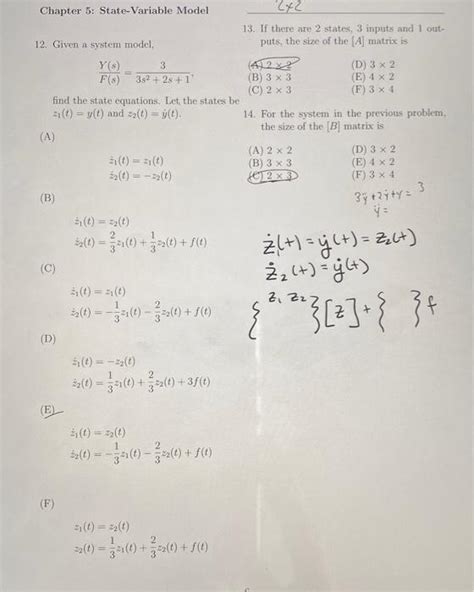 Chapter 5: State-Variable Model
2x2
12. Given a system model,
Y(s)/F(s) = 3/(3s² + 2s + 1),
find the state equations. Let the states be
z₁(t) = y(t) and z₂(t) = ẏ(t).
(A)
ż₁(t) = z₁(t)
ż₂(t) = −z₂(t)
(B)
ż₁(t) = z₂(t)
ż₂(t) = 2/3 z₁(t) + 1/3 z₂(t) + f(t)
(C)
ż₁(t) = z₁(t)
ż₂(t) = −1/3 z₁(t) − 2/3 z₂(t) + f(t)
(D)
ż₁(t) = −z₂(t)
ż₂(t) = 1/3 z₁(t) + 2/3 z₂(t) + 3f(t)
(E)
ż₁(t) = z₂(t)
ż₂(t) = −1/3 z₁(t) − 2/3 z₂(t) + f(t)
(F)
z₁(t) = z₂(t)
z₂(t) = 1/3 z₁(t) + 2/3 z₂(t) + f(t)
13. If there are 2 states, 3 inputs and 1 out-
puts, the size of the [A] matrix is
(A) 2 × 2
(B) 3 × 3
(C) 2 × 3
(D) 3 × 2
(E) 4 × 2
(F) 3 × 4
14. For the system in the previous problem,
the size of the [B] matrix is
(A) 2 × 2
(B) 3 × 3
(C) 2 × 3
(D) 3 × 2
(E) 4 × 2
(F) 3 × 4
3ÿ+2ẏ+y= 3
ÿ=
ż₁(t)=ẏ(t)=z₂(t)
ż₂(t)=ÿ(t)
{z₁ z₂}[z]+{ }f